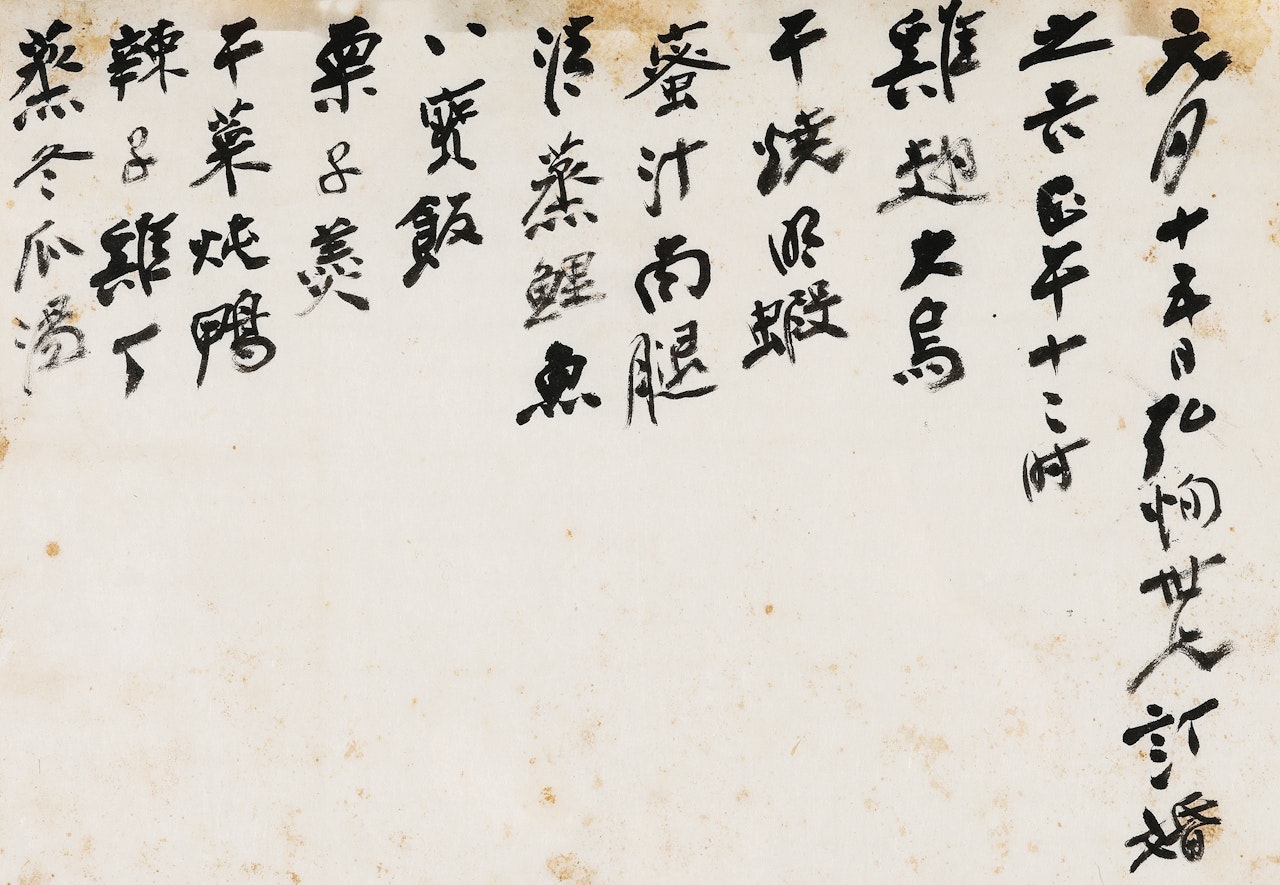 元月十五日弘恂世兄訂婚
之吉正午十二时
雞翅大烏
干燒明蝦
蜜汁南腿
清蒸鯉魚
八寶飯
栗子羹
干菜炖鴨
辣子雞丁
蒸冬瓜湯